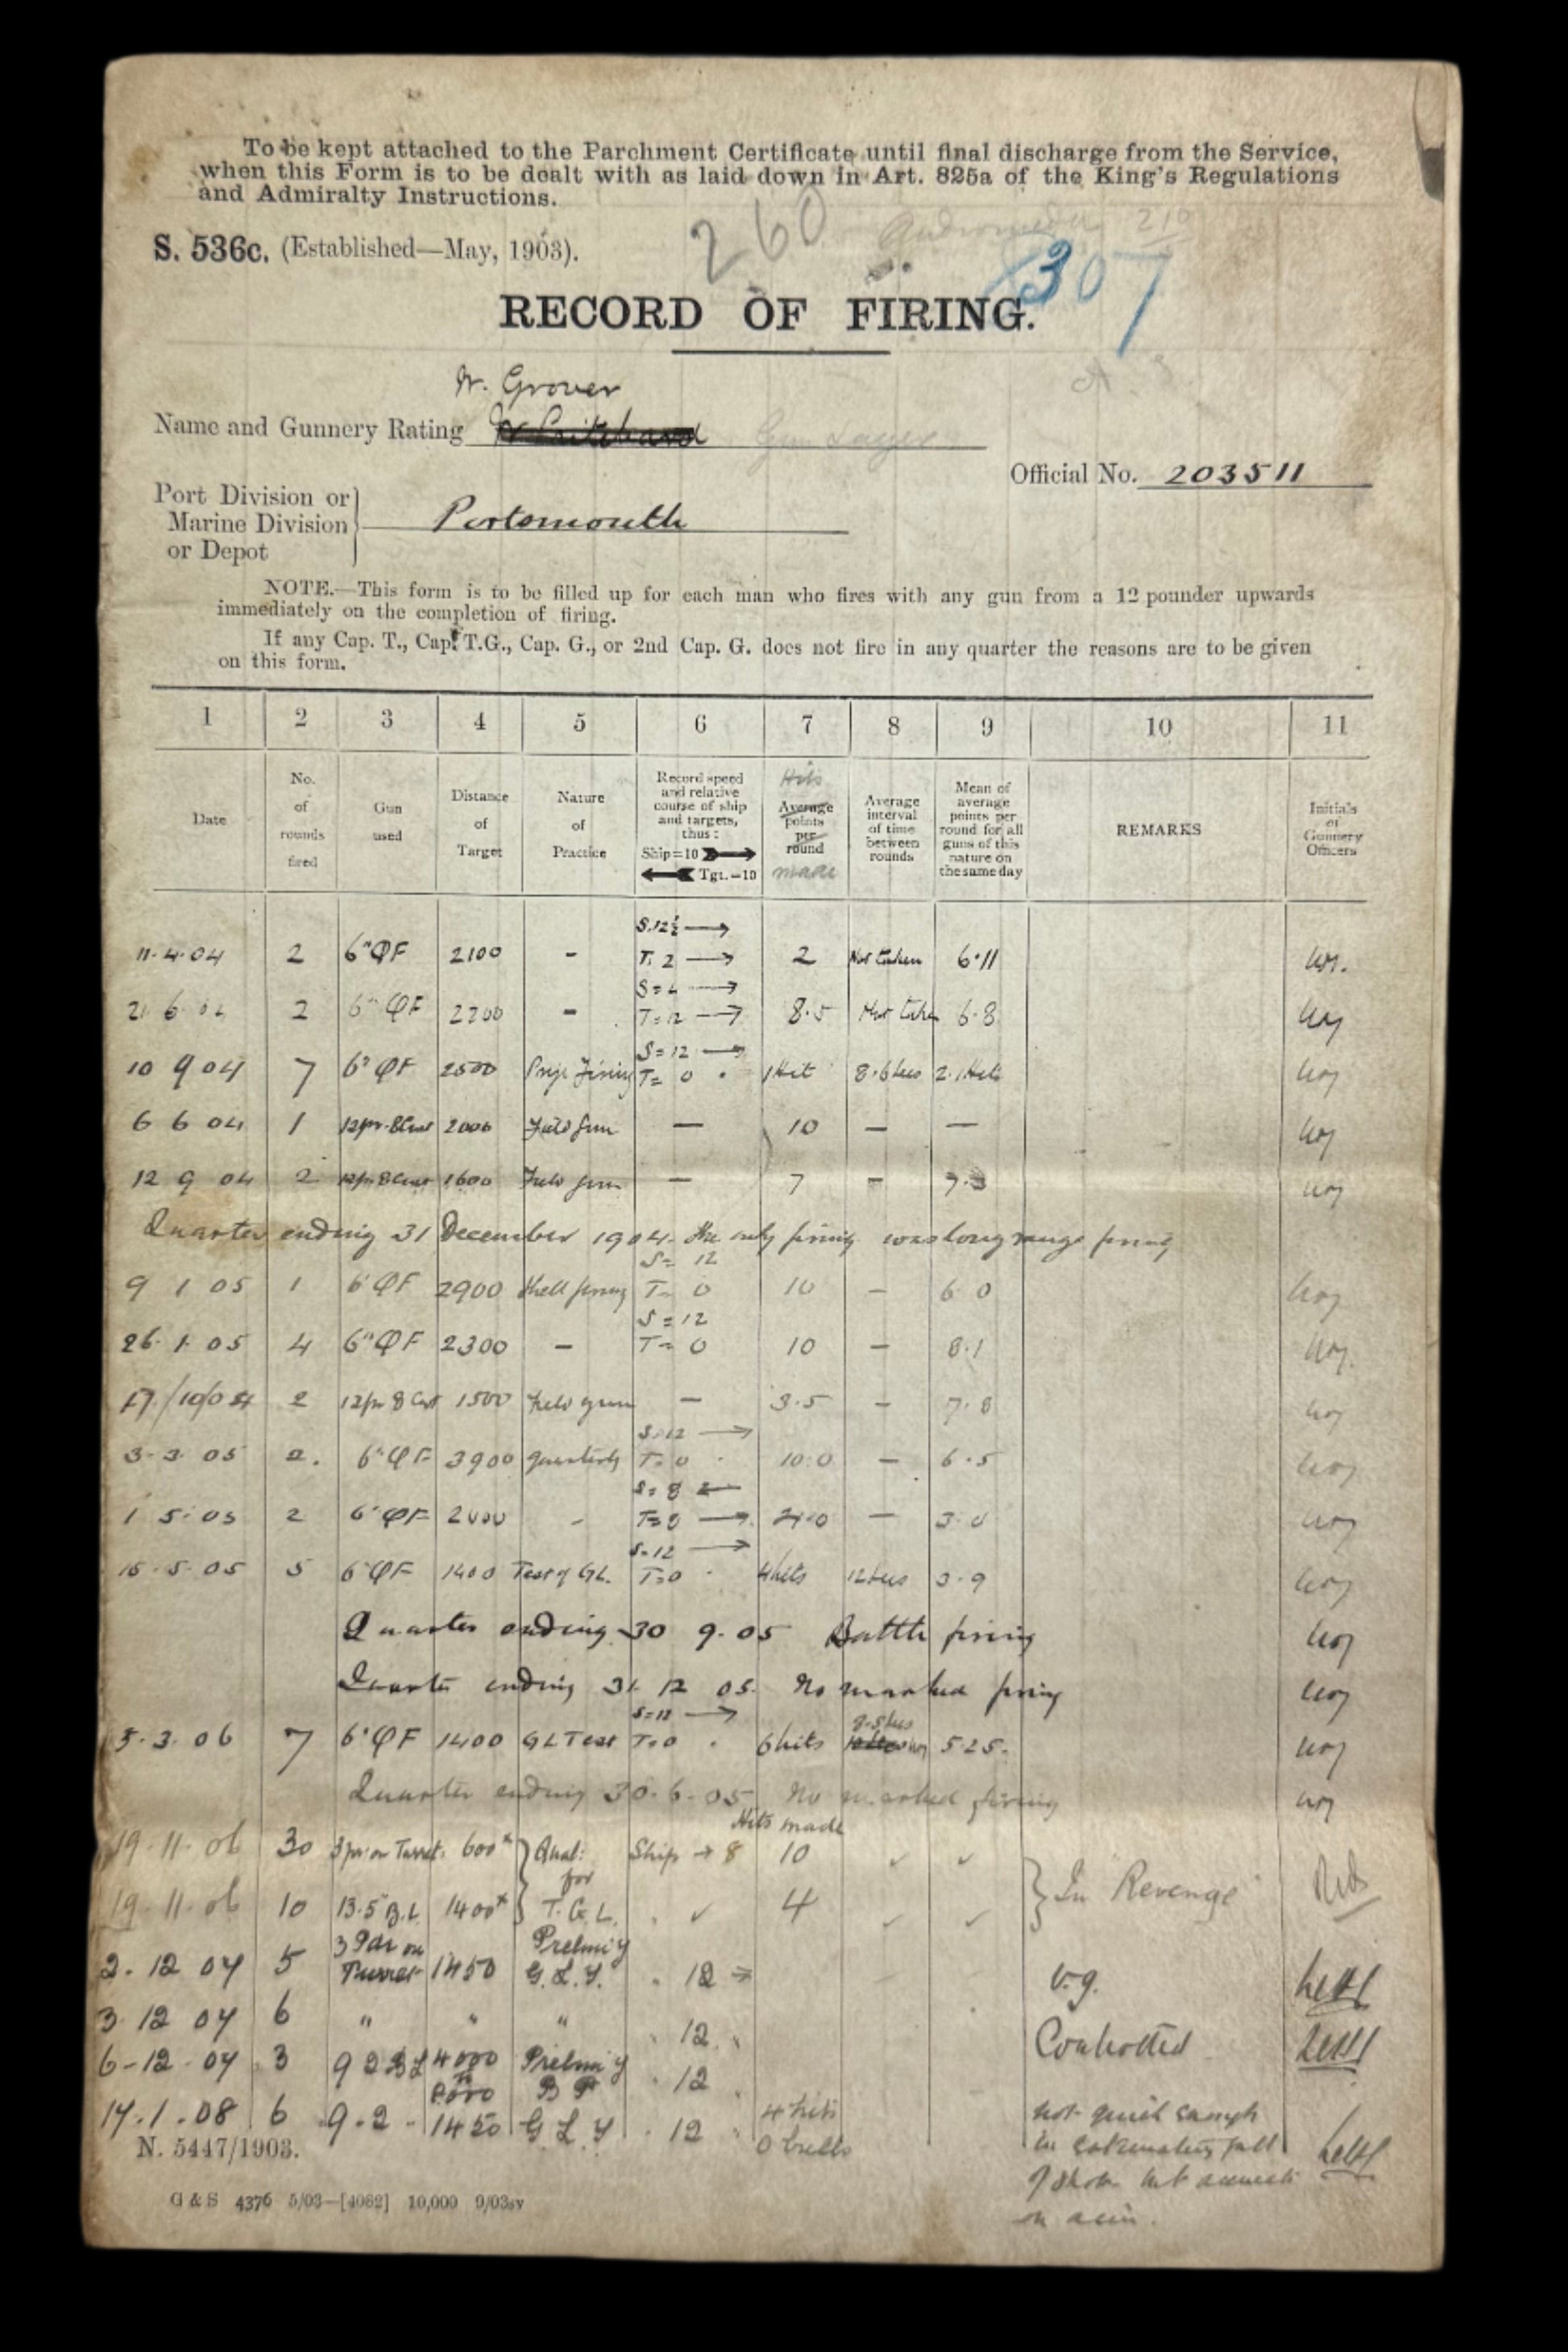 To be kept attached to the Parchment Certificate until final discharge from the Service,
when this Form is to be dealt with as laid down in Art. 825a of the King's Regulations
and Admiralty Instructions.
260 Andromeda 210
S. 536c. (Established—May, 1903).
307
RECORD OF FIRING.
W. Grover
Name and Gunnery Rating W Pritchard Gun Layer
Official No. 203511
Port Division or
Marine Division
or Depot
Portsmouth
NOTE.—This form is to be filled up for each man who fires with any gun from a 12 pounder upwards
immediately on the completion of firing.
If any Cap. T., Cap. T.G., Cap. G., or 2nd Cap. G. does not fire in any quarter the reasons are to be given
on this form.
1 2 3 4 5 6 7 8 9 10 11
Date
No. of rounds fired
Gun used
Distance of Target
Nature of Practice
Record speed and relative course of ship and targets, thus: Ship=10 → ← Tgt.=10
Hits Average points per round made
Average interval of time between rounds
Mean of average points per round for all guns of this nature on the same day
REMARKS
Initials of Gunnery Officers
S.12½ →
11.4.04 2 6"QF 2100 - T. 2 → 2 Not taken 6.11
S=4 →
21 6 04 2 6" QF 2200 - T=12 → 8.5 Not taken 6.8
S=12 →
10 9 04 7 6" QF 2500 Prize Firing T= 0 · 1 Hit 8.6 secs 2.1 Hits
6 6 04 1 12pr. 8 Cwt 2000 Field Gun — 10 — —
12 9 04 2 12pr 8 Cwt 1600 Field gun — 7 — 7.3
Quarter ending 31 December 1904. the only firing was long range firing
S= 12
9 1 05 1 6"QF 2900 Shell firing T= 0 10 — 6 0
S=12
26.1.05 4 6"QF 2300 — T= 0 10 — 8.1
17/10/04 2 12pr 8 Cwt 1500 Field gun — 3.5 — 7.8
S=12 →
3-3 05 2. 6"QF 3900 Quarterly T=0 · 10.0 — 6.5
S=8 ←
1 5.05 2 6"QF 2000 - T=8 → — 3.0
S=12 →
15.5.05 5 6"QF 1400 Test of GL. T=0 · 4 hits 12 secs 3.9
Quarter ending 30 9.05 Battle firing
Quarter ending 31 12 05. No marked firing
S=12 →
5.3.06 7 6"QF 1400 GL Test T=0 · 6 hits 8.5 secs 5 25.
Quarter ending 30.6.05 No marked firing
Hits made
19.11.06 30 3pr on Turret. 600ˣ Qual: for Ship → 8 10
19.11.06 10 13.5 B.L 1400ˣ T.G.L. 4 In "Revenge"
2.12 07 5 3 Pdr on Turret 1450 Prelmy G.L.T. 12 → v.g.
3 12 07 6 " " " 12 " Controlled
6-12-07 3 9 2 BL 4000 Prelmy B P 12 "
17.1.08 6 9.2 1450 G L T 12 " 4 hits 0 bulls
not quick enough
in estimating fall
of shot but
on aim.
N. 5447/1903.
G & S 4376 5/03—[4062] 10,000 9/03